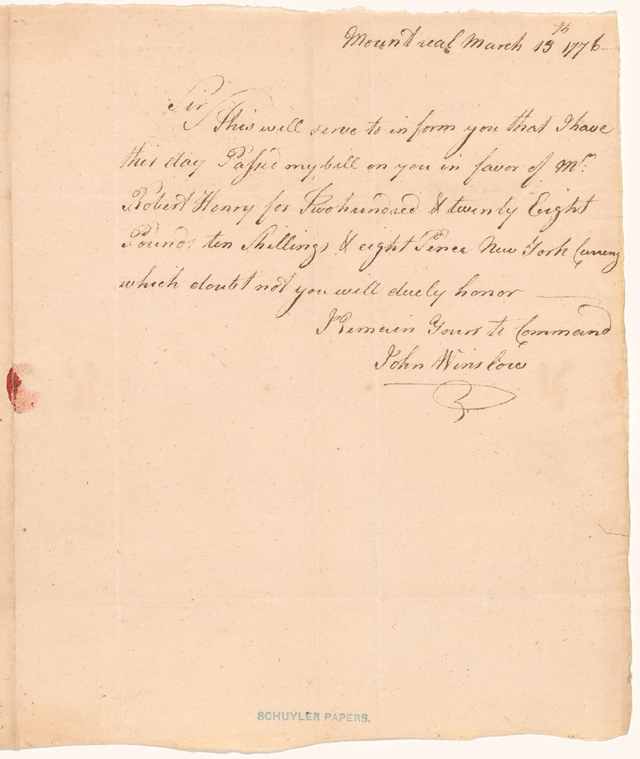 Mountreal March 13th 1776
Sir
This will serve to inform you that I have
this day Passed my bill on you in favor of Mr.
Robert Henry for Twohundred & twenty Eight
Pounds ten Shillings & eight Pence New York Currency
which doubt not you will duely honor
I Remain Yours to Command
John Winslow
SCHUYLER PAPERS.